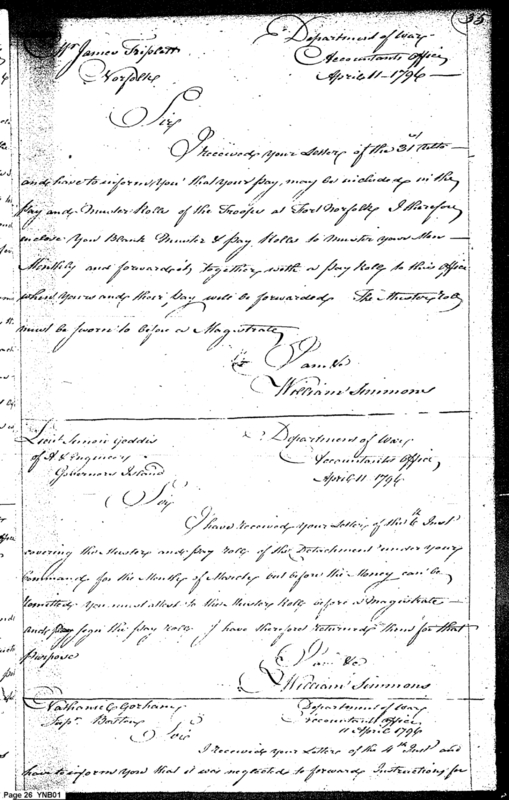 35
Mr James Triplett
Norfolk
Department of War
Accountants Office
April 11 - 1796
Sir
I received your Letter of the 31st Ulto
and have to inform you that your Pay, may be included in the
Pay and Muster Rolls of the Troops at Fort Norfolk I therefore
inclose you Blank Muster & Pay Rolls to Muster your Men
Monthly and forward it, together with a Pay Roll to this Office
when yours and their Pay will be forwarded. The Muster roll
must be sworn to before a Magistrate
I am &c
William Simmons
Lieut Simon Geddis
of A & Engineers
Governors Island
Department of War
Accountants Office
April 11 1796
Sir
I have received your Letter of the 6th Inst
covering the Muster and Pay rolls of the Detachment under your
Command for the Month of March but before the Money can be
remitted you must attest to the Muster Roll before a Magistrate
and sign the Pay Roll I have therefore returned them for that
purpose
I am &c
William Simmons
Nathaniel Gorham
Supr Boston
Department of War
Accountants Office
11 April 1796
Sir
I received your Letter of the 4th Inst and
have to inform you that it was neglected to forward Instructions for
Page 26 YNB01